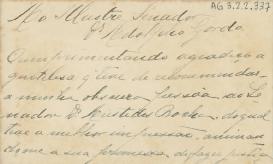 AG 3.2.2.337
Ao Illustre Senador
Dr Adolpho Gordo
Cumprimentando agradeço a
gentileza q teve de recommendar
a minha obscura pessôa ao Se-
nador Dr
a melhor impressão,
a sua promessa,